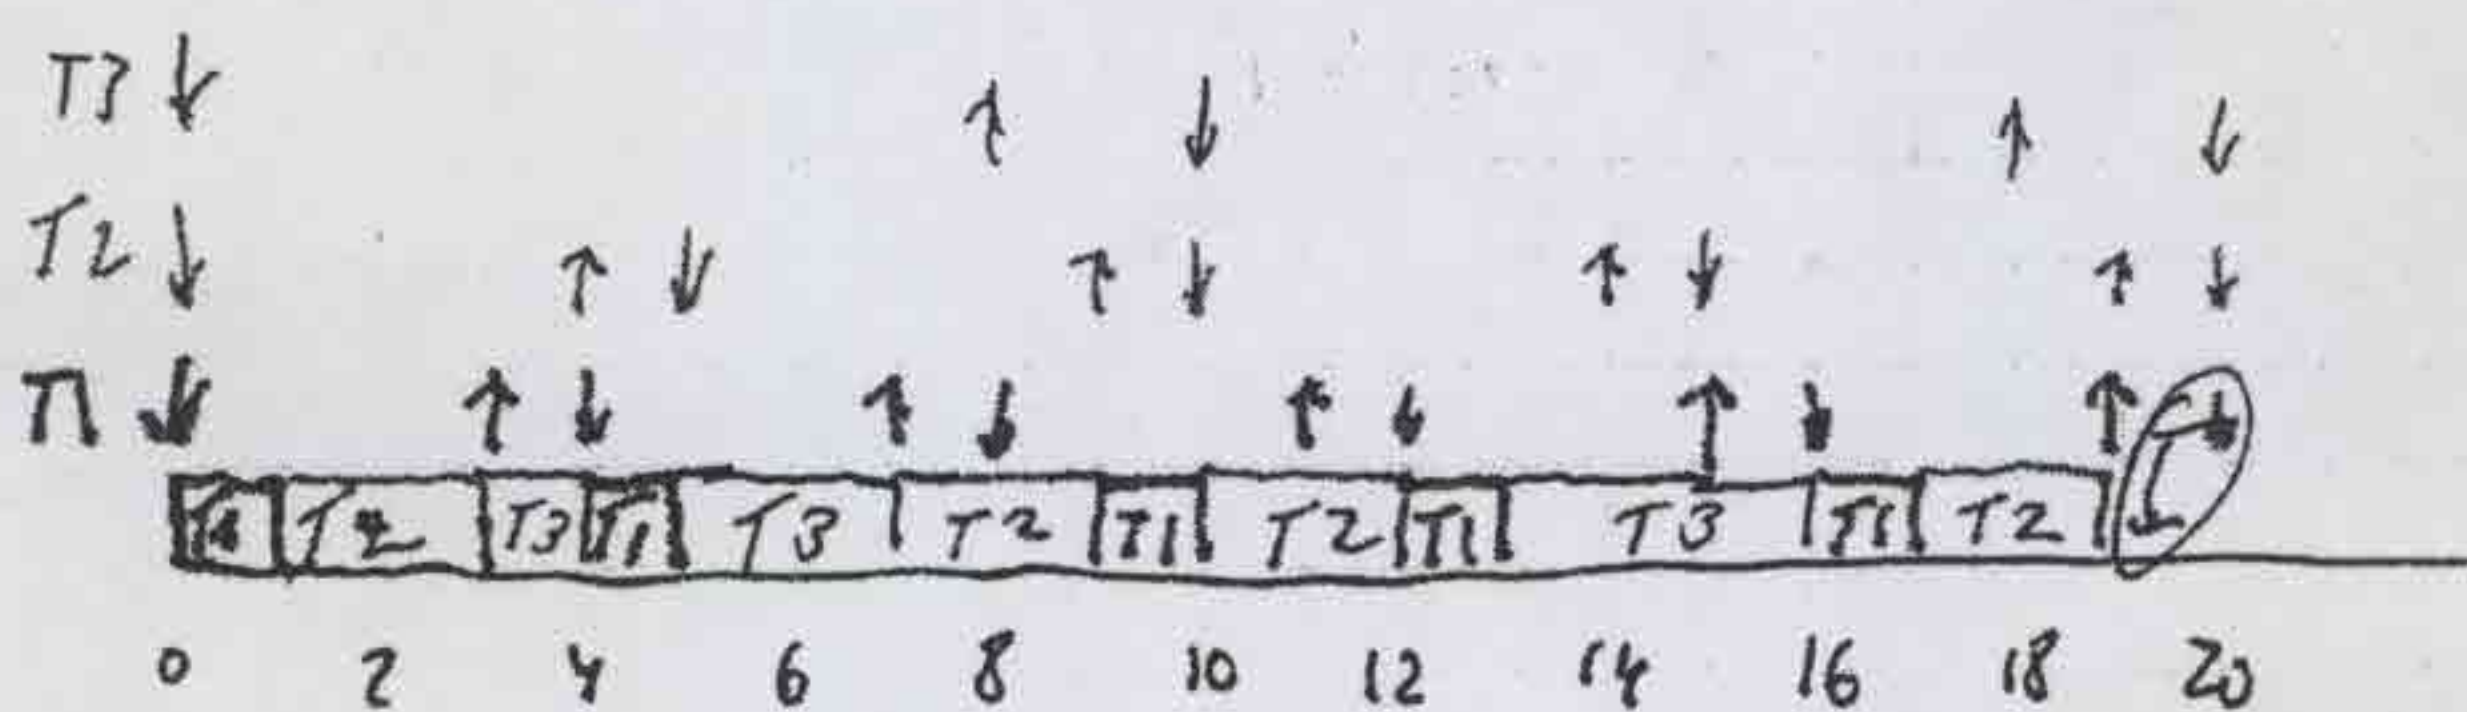 T3
T2
T1
T1 T2 T3 T1 T3 T2 T1 T2 T1 T3 T1 T2
0 2 4 6 8 10 12 14 16 18 20